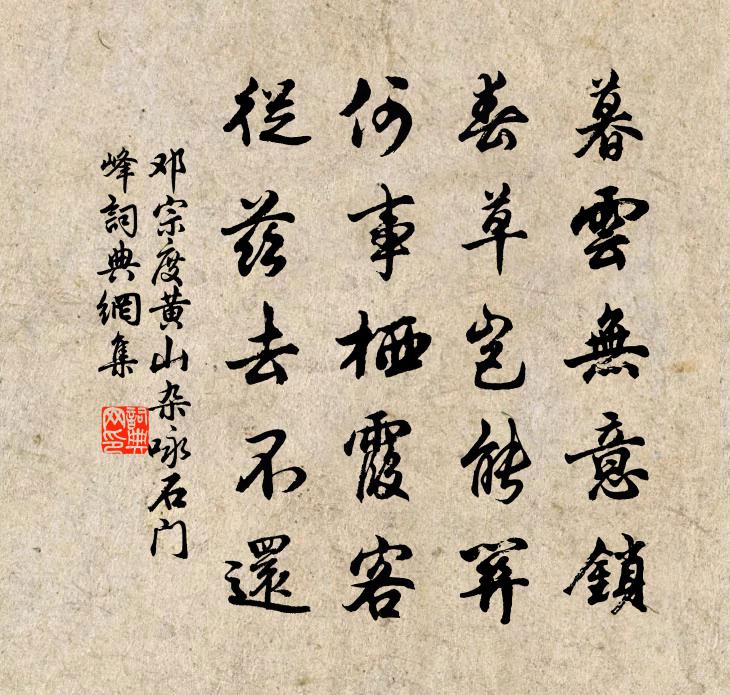 暮雲無意鎖
春草豈能關
何事栖霞客
從茲去不還
邓宗度黄山杂咏石门
峰詞典網集
詞典
网印